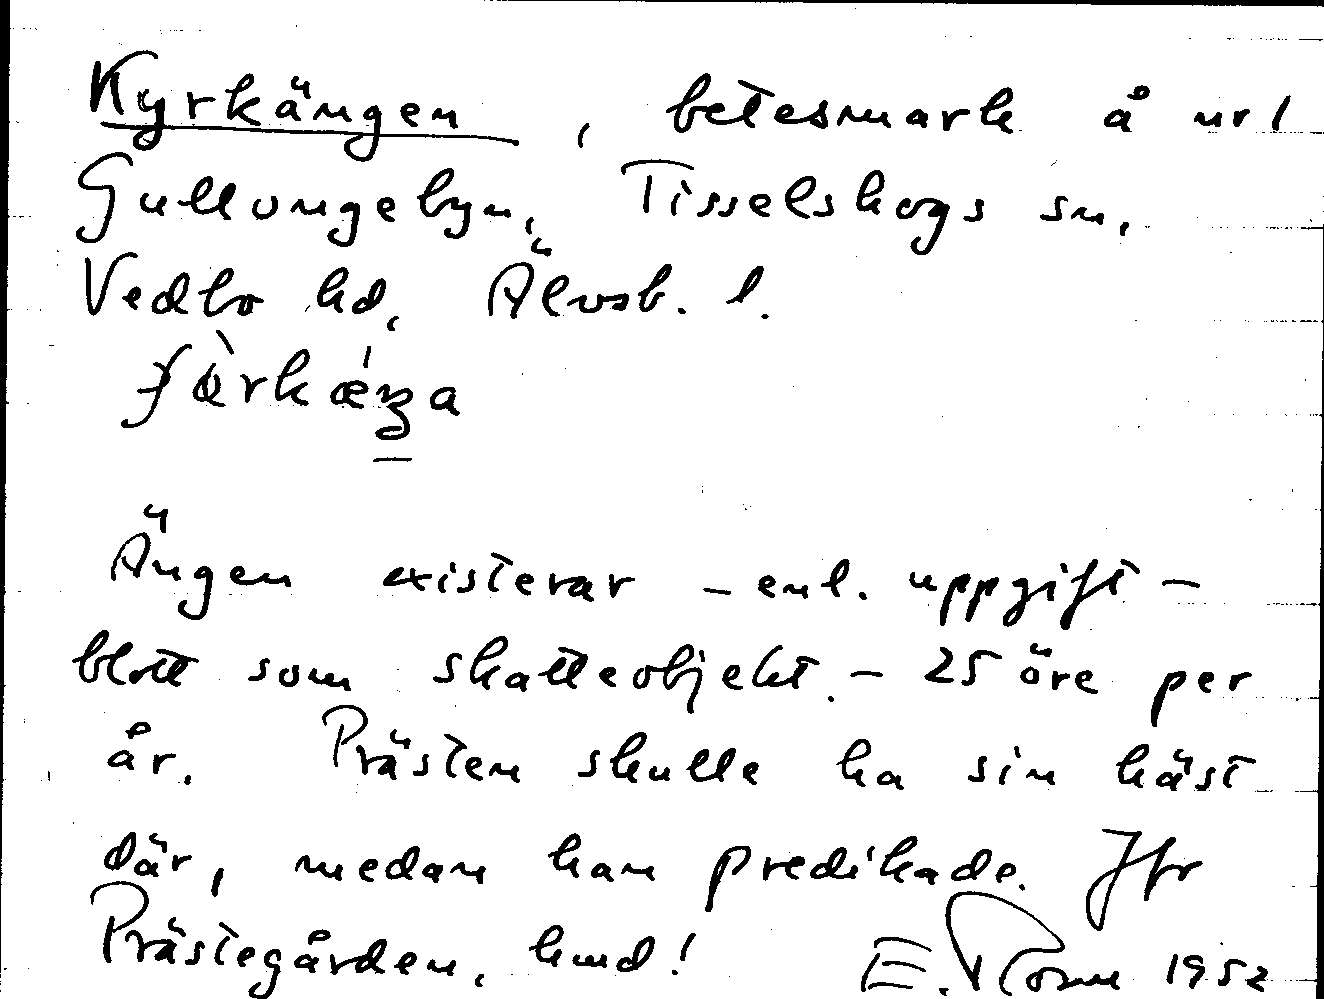 Kyrkängen, betesmark å nr 1
Gullungebyn, Tisselskogs sn,
Vedbo hd, Älvsb. l.
Ängen existerar – enl. uppgift –
blott som skatteobjekt. – 25 öre per
år. Prästen skulle ha sin häst
där, medan han predikade. Jfr
Prästegården, hmd!
E. Rosn 1952